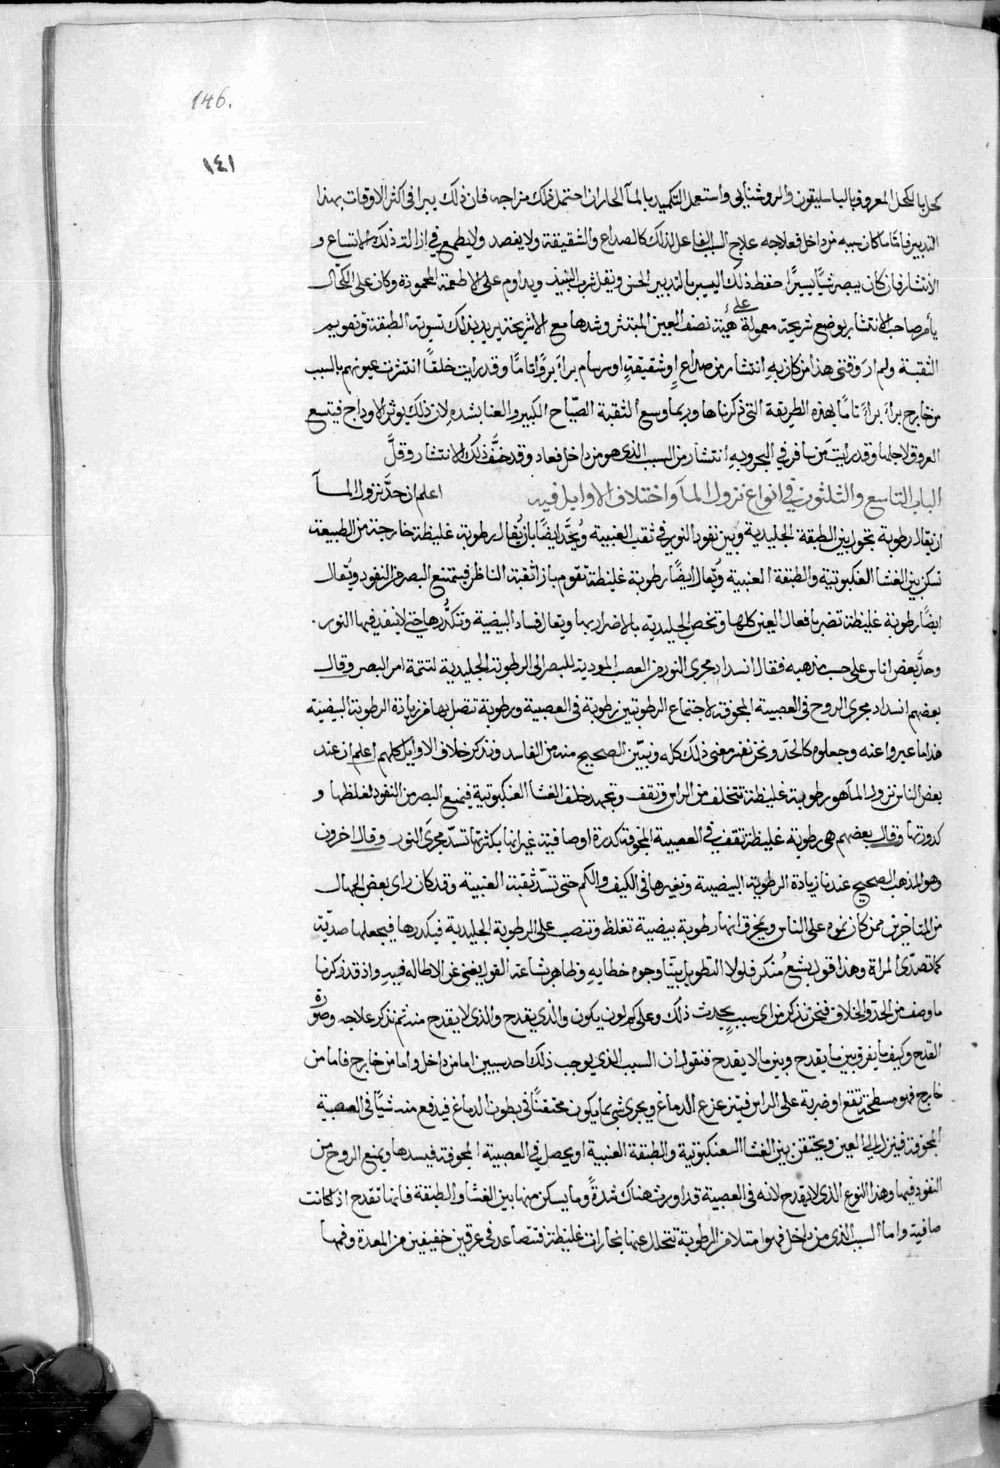 146.
١٤١
كحل بالكحل المعروف بالباسليقون والروشنايى واستعمل التكميد بالمآ الحار ان احتمل ذلك مزاجه فان ذلك يبرا فى اكثر الاوقات بهذا
التدبير فاما ما كان سببه من داخل فعلاجه علاج السبب الفاعل لذلك كالصداع والشقيقة ولا يفصد ولا يطمع فى ازالة ذلك الاتساع و
الانتشار فان كان يبصر شيًا يسيرًا حفظ ذلك اليسير بالتدبير الحسن ويقل شرب النبيذ ويداوم على الاطعمة المحمودة وكان على الكحال
يأمر صاحب الانتشار بوضع شريحة معمولة على هيئة نصف العين المنتثر وشدها مع الاشريحة يريد بذلك تسوية الطبقة وتقويم
الثقبة ولم ار فى وقتى هذا من كان به انتشار من صداع او شقيقة او سرسام برأ برًا تامًا وقد رايت خلقًا انتثرت عيونهم بالسبب
من خارج برأ براءً تامًا بهذه الطريقة التى ذكرناها وربما وسع الثقبة الصّياح الكبير والعنا بشده لان ذلك يوثر الاوداج فيتسع
العروق لاجلها وقد رايت من سافر فى البحر وبه انتشار من السبب الذى هو من داخل فعاد وقد خفَّ ذلك الانتشار وقلَّ
الباب التاسع والثلثون فى انواع نزول المآ واختلاف الاوايل فيه اعلم ان حدَّ نزول المآ
ان يقال رطوبة تحول بين الطبقة الجليدية وبين نفوذ النور فى ثقب العنبية ويُحَدُّ ايضًا بان يُقال رطوبة غليظة خارجة من الطبيعة
تسكن بين الغشا العنكبوتية والطبقة العنبية ويُقال ايضًا رطوبة غليظة تقوم بازا ثقبة الناظر فيمتنع البصر من النفوذ ويقال
ايضًا رطوبة غليظة تضر بافعال العين كلها وتخص الجليدية بالاضرار بها ويقال فساد البيضية وتكدُّرها حتى لا ينفذ فيها النور .
وحدَّ بعض اناس على حسب مذهبه فقال انسداد مجرى النور من العصب المودية للبصر الى الرطوبة الجليدية لتتمة امر البصر وقال
بعضهم انسداد مجرى الروح فى العصبية المجوفة لاجتماع الرطوبتين رطوبة فى العصبية ورطوبة تتصل بها من زيادة الرطوبة البيضية
هذا ما عبروا عنه وجعلوه كالحدّ ونحن نفسر معنى ذلك كله ونبيّن الصحيح منه من الفاسد ونذكر خلاف الاوايل كلهم اعلم ان عند
بعض الناس نزول المآ هو رطوبة غليظة تتخلف من الراس وتقف وتجمد خلف الغشا العنكبوتية فيمنع البصر من النفوذ لغلظها و
كدورتها وقال بعضهم هى رطوبة غليظة تقف فى العصبية المجوفة كدرة او صافية غير انها بكثرتها تسدّ مجرى النور وقال اخرون
وهو المذهب الصحيح عندنا زيادة الرطوبة البيضية وتغيرها فى الكيف والكم حتى تسدّ ثقبة العنبية وقد كان راى بعض الجهال
من المتاخرين ممن كان يموه على الناس ويخرق انها رطوبة بيضية تغلظ وتنصب على الرطوبة الجليدية فيكدرها فيجعلها صديّة
كما تصدّى المراة وهذا قول بشع مُنكر فلولا التطويل بيّنا وجوه خطايه وظاهر شاعة القول يغنى عن الاطاله فيه واذ قد ذكرنا
ما وصف من الحدّ والخلاف فنحن نذكر من اى سبب يحدث ذلك وعلى كم لون يكون والذى يقدح والذى لا يقدح منه ثم نذكر علاجه وصورة
القدح وكيف ما يفرق بين ما يقدح وبين ما لا يقدح فنقول ان السبب الذى يوجب ذلك احد سببين اما من داخل واما من خارج فاما من
خارج فهو مسطحة تقع او ضربة على الراس فيتزعزع الدماغ ويجرى شى مما يكون محتقنًا فى بطون الدماغ فيدفع منه شيًا فى العصبة
المجوفة فينزل الى العين ويحتقن بين الغشا العنكبوتية والطبقة العنبية او يحصل فى العصبية المجوفة فيسدها ويمنع الروح من
النفوذ فيها وهذا النوع الذى لا يقدح لانه فى العصبية قد اورث هناك سُدةً وما يسكن منها بين الغشا والطبقة فانها تقدح اذ كانت
صافية واما السبب الذى من داخل فهو امتلا من الرطوبة تتحلل عنها بخارات غليظة فتتصاعد فى عرقين خفيفين من المعدة وفمها